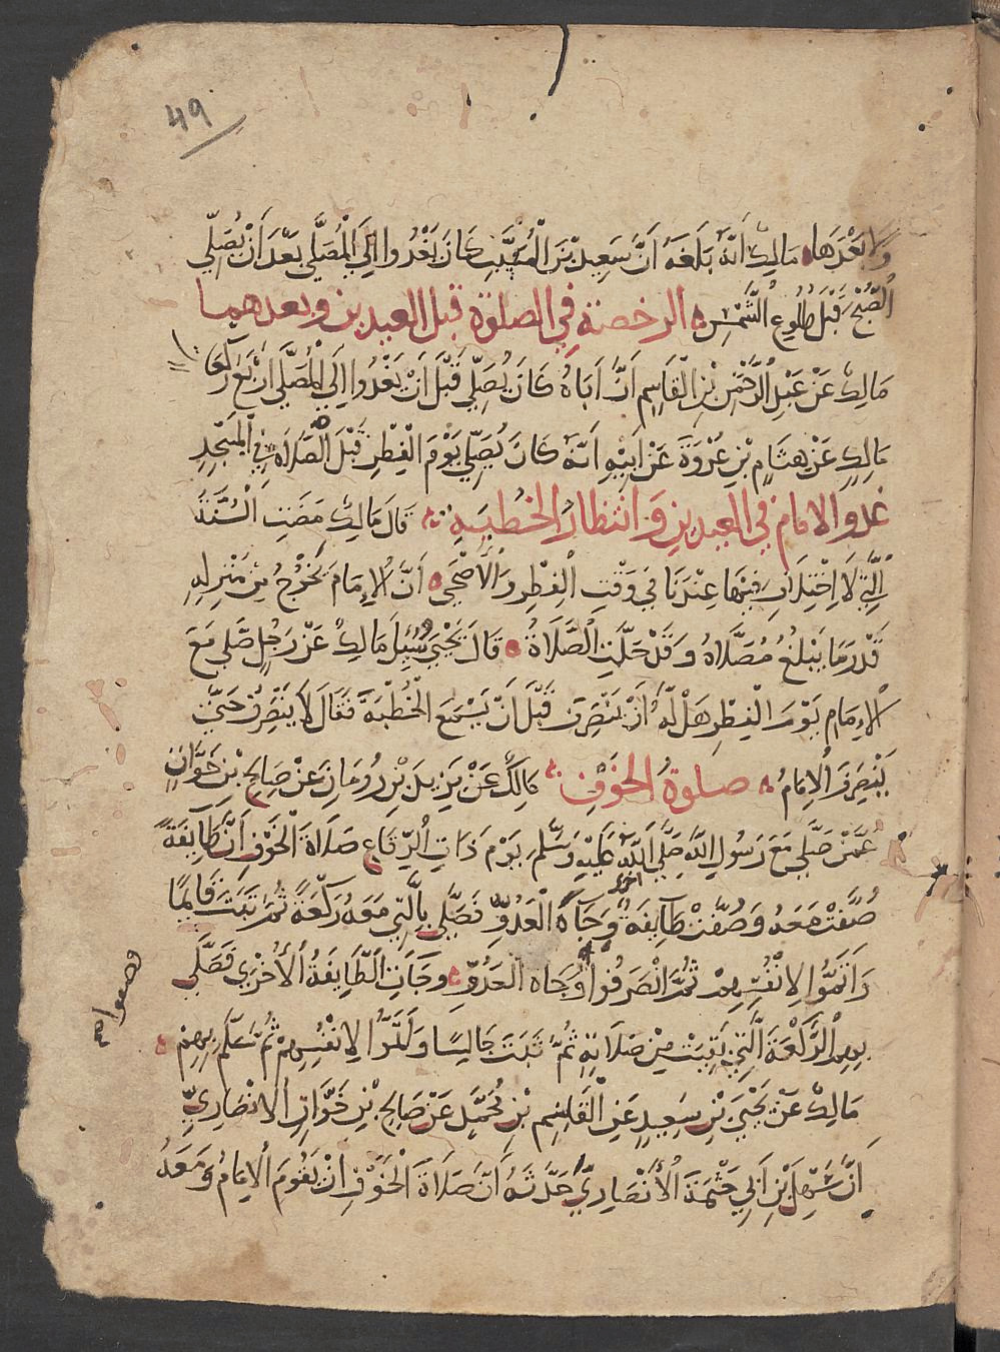 49
وَلَا بَعْدَهَا مَالِكٌ أَنَّهُ بَلَغَهُ أَنَّ سَعِيدَ بْنَ الْمُسَيَّبِ كَانَ يَغْدُوا إِلَى الْمُصَلَّى بَعْدَ أَنْ يُصَلِّي
الصُّبْحَ قَبْلَ طُلُوعِ الشَّمْسِ الرخصة في الصلوة قبل العيدين وبعدهما
مَالِكٌ عَنْ عَبْدِ الرَّحْمَنِ بْنِ الْقَاسِمِ أَنَّ أَبَاهُ كَانَ يُصَلِّي قَبْلَ أَنْ يَغْدُوا إِلَى الْمُصَلَّى أَرْبَعَ رَكَعَا
مَالِكٌ عَنْ هِشَامِ بْنِ عُرْوَةَ عَنْ أَبِيهِ أَنَّهُ كَانَ يُصَلِّي يَوْمَ الْفِطْرِ قَبْلَ الصَّلَاةِ فِي الْمَسْجِدِ
غدو الامام في العيدين وَانتظارُ الخُطبَةِ قَالَ مَالِكٌ مَضَتِ السُّنَّةُ
الَّتِي لَا اخْتِلَافَ فِيهَا عِنْدَنَا فِي وَقْتِ الْفِطْرِ وَالْأَضْحَى أَنَّ الْإِمَامَ يَخْرُجُ مِنْ مَنْزِلِهِ
قَدْرَ مَا يَبْلُغُ مُصَلَّاهُ وَقَدْ حَلَّتِ الصَّلَاةُ قَالَ يَحْيَى وَسُئِلَ مَالِكٌ عَنْ رَجُلٍ صَلَّى مَعَ
الْإِمَامِ يَوْمَ الْفِطْرِ هَلْ لَهُ أَنْ يَنْصَرِفَ قَبْلَ أَنْ يَسْمَعَ الْخُطْبَةَ فَقَالَ لَا يَنْصَرِفُ حَتَّى
يَنْصَرِفَ الْإِمَامُ صلوةُ الخَوْفِ مَالِكٌ عَنْ يَزِيدَ بْنِ رُومَانَ عَنْ صَالِحِ بْنِ خَوَّاتٍ
عَمَّنْ صَلَّى مَعَ رَسُولِ اللَّهِ صَلَّى اللَّهُ عَلَيْهِ وَسَلَّمَ يَوْمَ ذَاتِ الرِّقَاعِ صَلَاةَ الْخَوْفِ أَنَّ طَايِفَةً
صُفَّتْ مَعَهُ وَصُفَّتْ طَايِفَةٌ وِجَاهَ الْعَدُوِّ فَصَلَّى بِالَّتِي مَعَهُ رَكْعَةً ثُمَّ ثَبَتَ قَايِمًا
وَأَتَمُّوا لِأَنْفُسِهِمْ ثُمَّ انْصَرَفُوا وُجَاه الْعَدُوِّ وجَاتِ الطَّايِفَةُ الْأُخْرَى فَصَلَّى
بِهِمُ الرَّكْعَةَ الَّتِي بَقِيَتْ مِنْ صَلَاتِهِ ثُمَّ ثَبَتَ جَالِسًا وَأَتَمُّوا لِأَنْفُسِهِمْ ثُمَّ سَلَّمَ بِهِمْ
مَالِكٌ عَنْ يَحْيَى بْنِ سَعِيدٍ عَنِ الْقَاسِمِ بْنِ مُحَمَّدٍ عَنْ صَالِحِ بْنِ خَوَّاتٍ الْأَنْصَارِيِّ
أَنَّ سَهْلَ بْنَ أَبِي حَثْمَةَ الْأَنْصَارِيَّ حَدَّثَهُ أَنَّ صَلَاةَ الْخَوْفِ أَنْ يَقُومَ الْإِمَامُ وَمَعَهُ